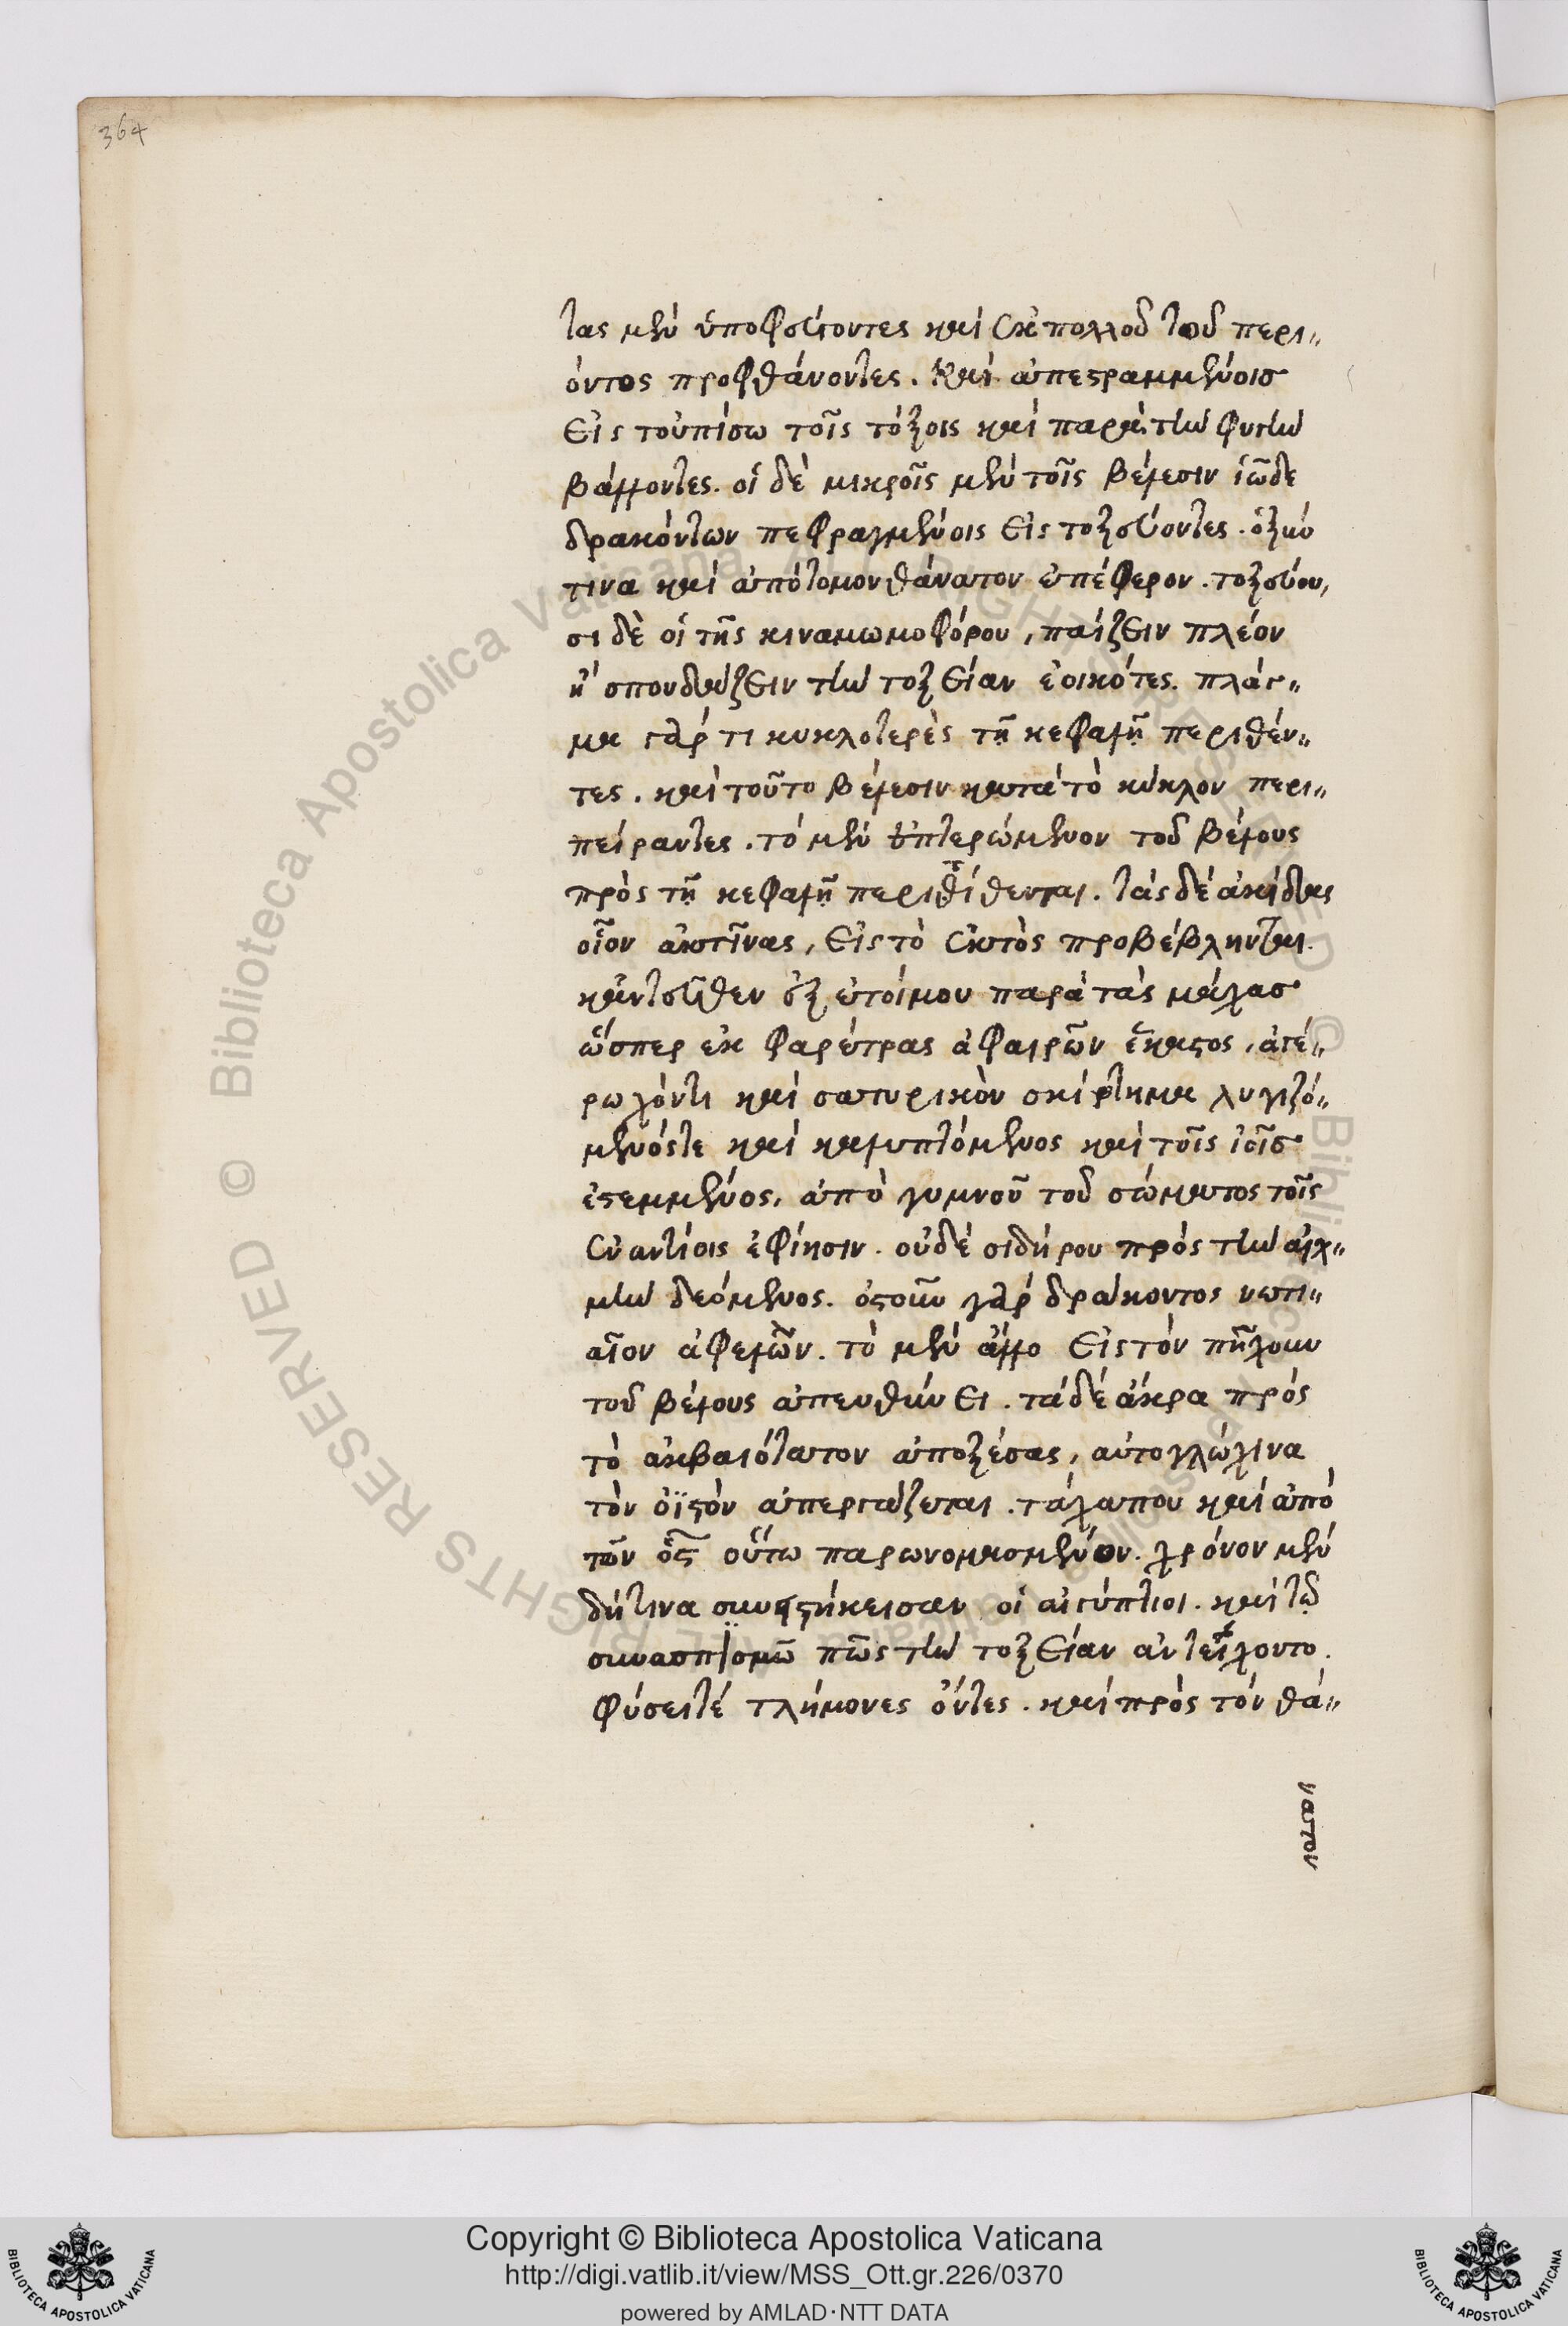 364
τας μὲν ὑποφεύγοντες καὶ ἐκ πολλοῦ τοῦ περι„
όντος προφθάνοντες. Καὶ ἀπεστραμμένοισ
εἰς τοὐπίσω τοῖς τόξοις καὶ παρὰ τὴν φυγὴν
βάλλοντες. οἱ δὲ μικροῖς μὲν τοῖς βέλεσιν ἰῶ δὲ
δρακόντων πεφραγμένοις εἰς τοξεύοντες. ὀξύν
τινα καὶ ἀπότομον θάνατον ἐπέφερον. τοξεύου,
σι δὲ οἱ τῆς κιναμωμοφόρου, παίζειν πλέον
ἢ σπουδάζειν τὴν τοξείαν ἐοικότες. πλάγ„
μα γάρ τι κυκλοτερὲς τῇ κεφαλῇ περιθέν„
τες. καὶ τοῦτο βέλεσιν κατὰ τὸ κύκλον περι„
πείραντες. τὸ μὲν ἐπτερώμενον τοῦ βέλους
πρὸς τῇ κεφαλῇ περιτίθενται. τὰς δὲ ἀκίδας
οἷον ἀκτῖνας, εἰς τὸ ἐκτὸς προβέβληνται.
κἀντεῦθεν ἐξ ἑτοίμου παρὰ τὰς μάχασ
ὥσπερ ἐκ φαρέτρας ἀφαιρῶν ἕκαστος, ἀγέ„
ρωχόντι καὶ σατυρικὸν σκίρτημα λυγιζό„
μενόστε καὶ καμπτόμενος καὶ τοῖς ἰοῖσ
ἐστεμμένος, ἀπὸ γυμνοῦ τοῦ σώματος τοῖς
ἐναντίοις ἐφίησιν. οὐδὲ σιδήρου πρὸς τὴν αἰχ„
μὴν δεόμενος. ὀστοῦν γὰρ δράκοντος νωτι„
αῖον ἀφελῶν. τὸ μὲν ἄλλο εἰς τὸν πῆχυν
τοῦ βέλους ἀπευθύνει. τὰ δὲ ἄκρα πρὸς
τὸ ἀκβαιότατον ἀποξέσας, αὐτογλώχινα
τὸν ὀϊστὸν ἀπεργάζεται. τάχα που καὶ ἀπὸ
τῶν ὀστ οὕτω παρωνομασμένον. χρόνον μὲν
δή τινα συνεστήκεισαν οἱ αἰγύπτιοι. καὶ τῷ
συνασπισμῶ πῶς τὴν τοξείαν ἀντείχοντο.
φύσει τέ τλήμονες ὄντες. καὶ πρὸς τὸν θά„
νατον
Copyright © Biblioteca Apostolica Vaticana
http://digi.vatlib.it/view/MSS_Ott.gr.226/0370
powered by AMLAD·NTT DATA
BIBLIOTECA APOSTOLICA VATICANA
BIBLIOTECA APOSTOLICA VATICANA
© Biblioteca Apostolica Vaticana ALL RIGHTS RESERVED